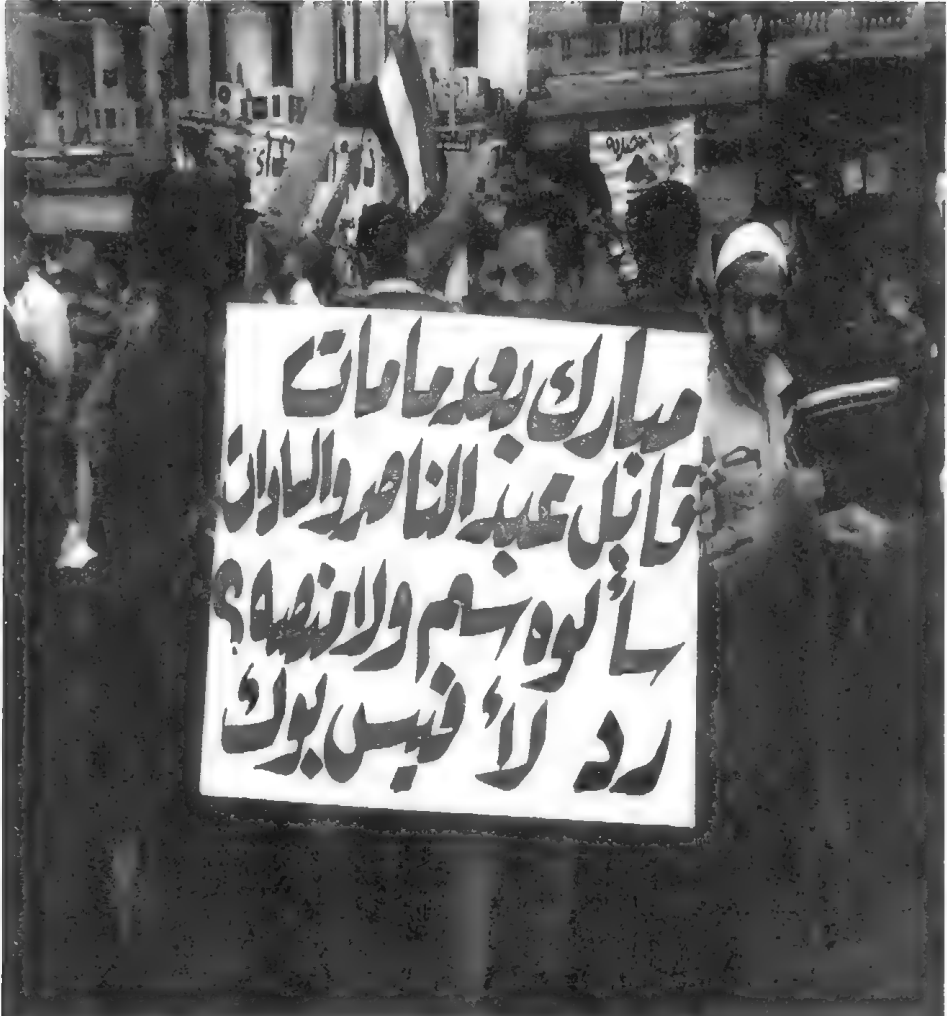 مبارك بعد ما مات
قابل عبد الناصر والسادات
سألوه سم ولا منصه؟
رد لأ فيس بوك